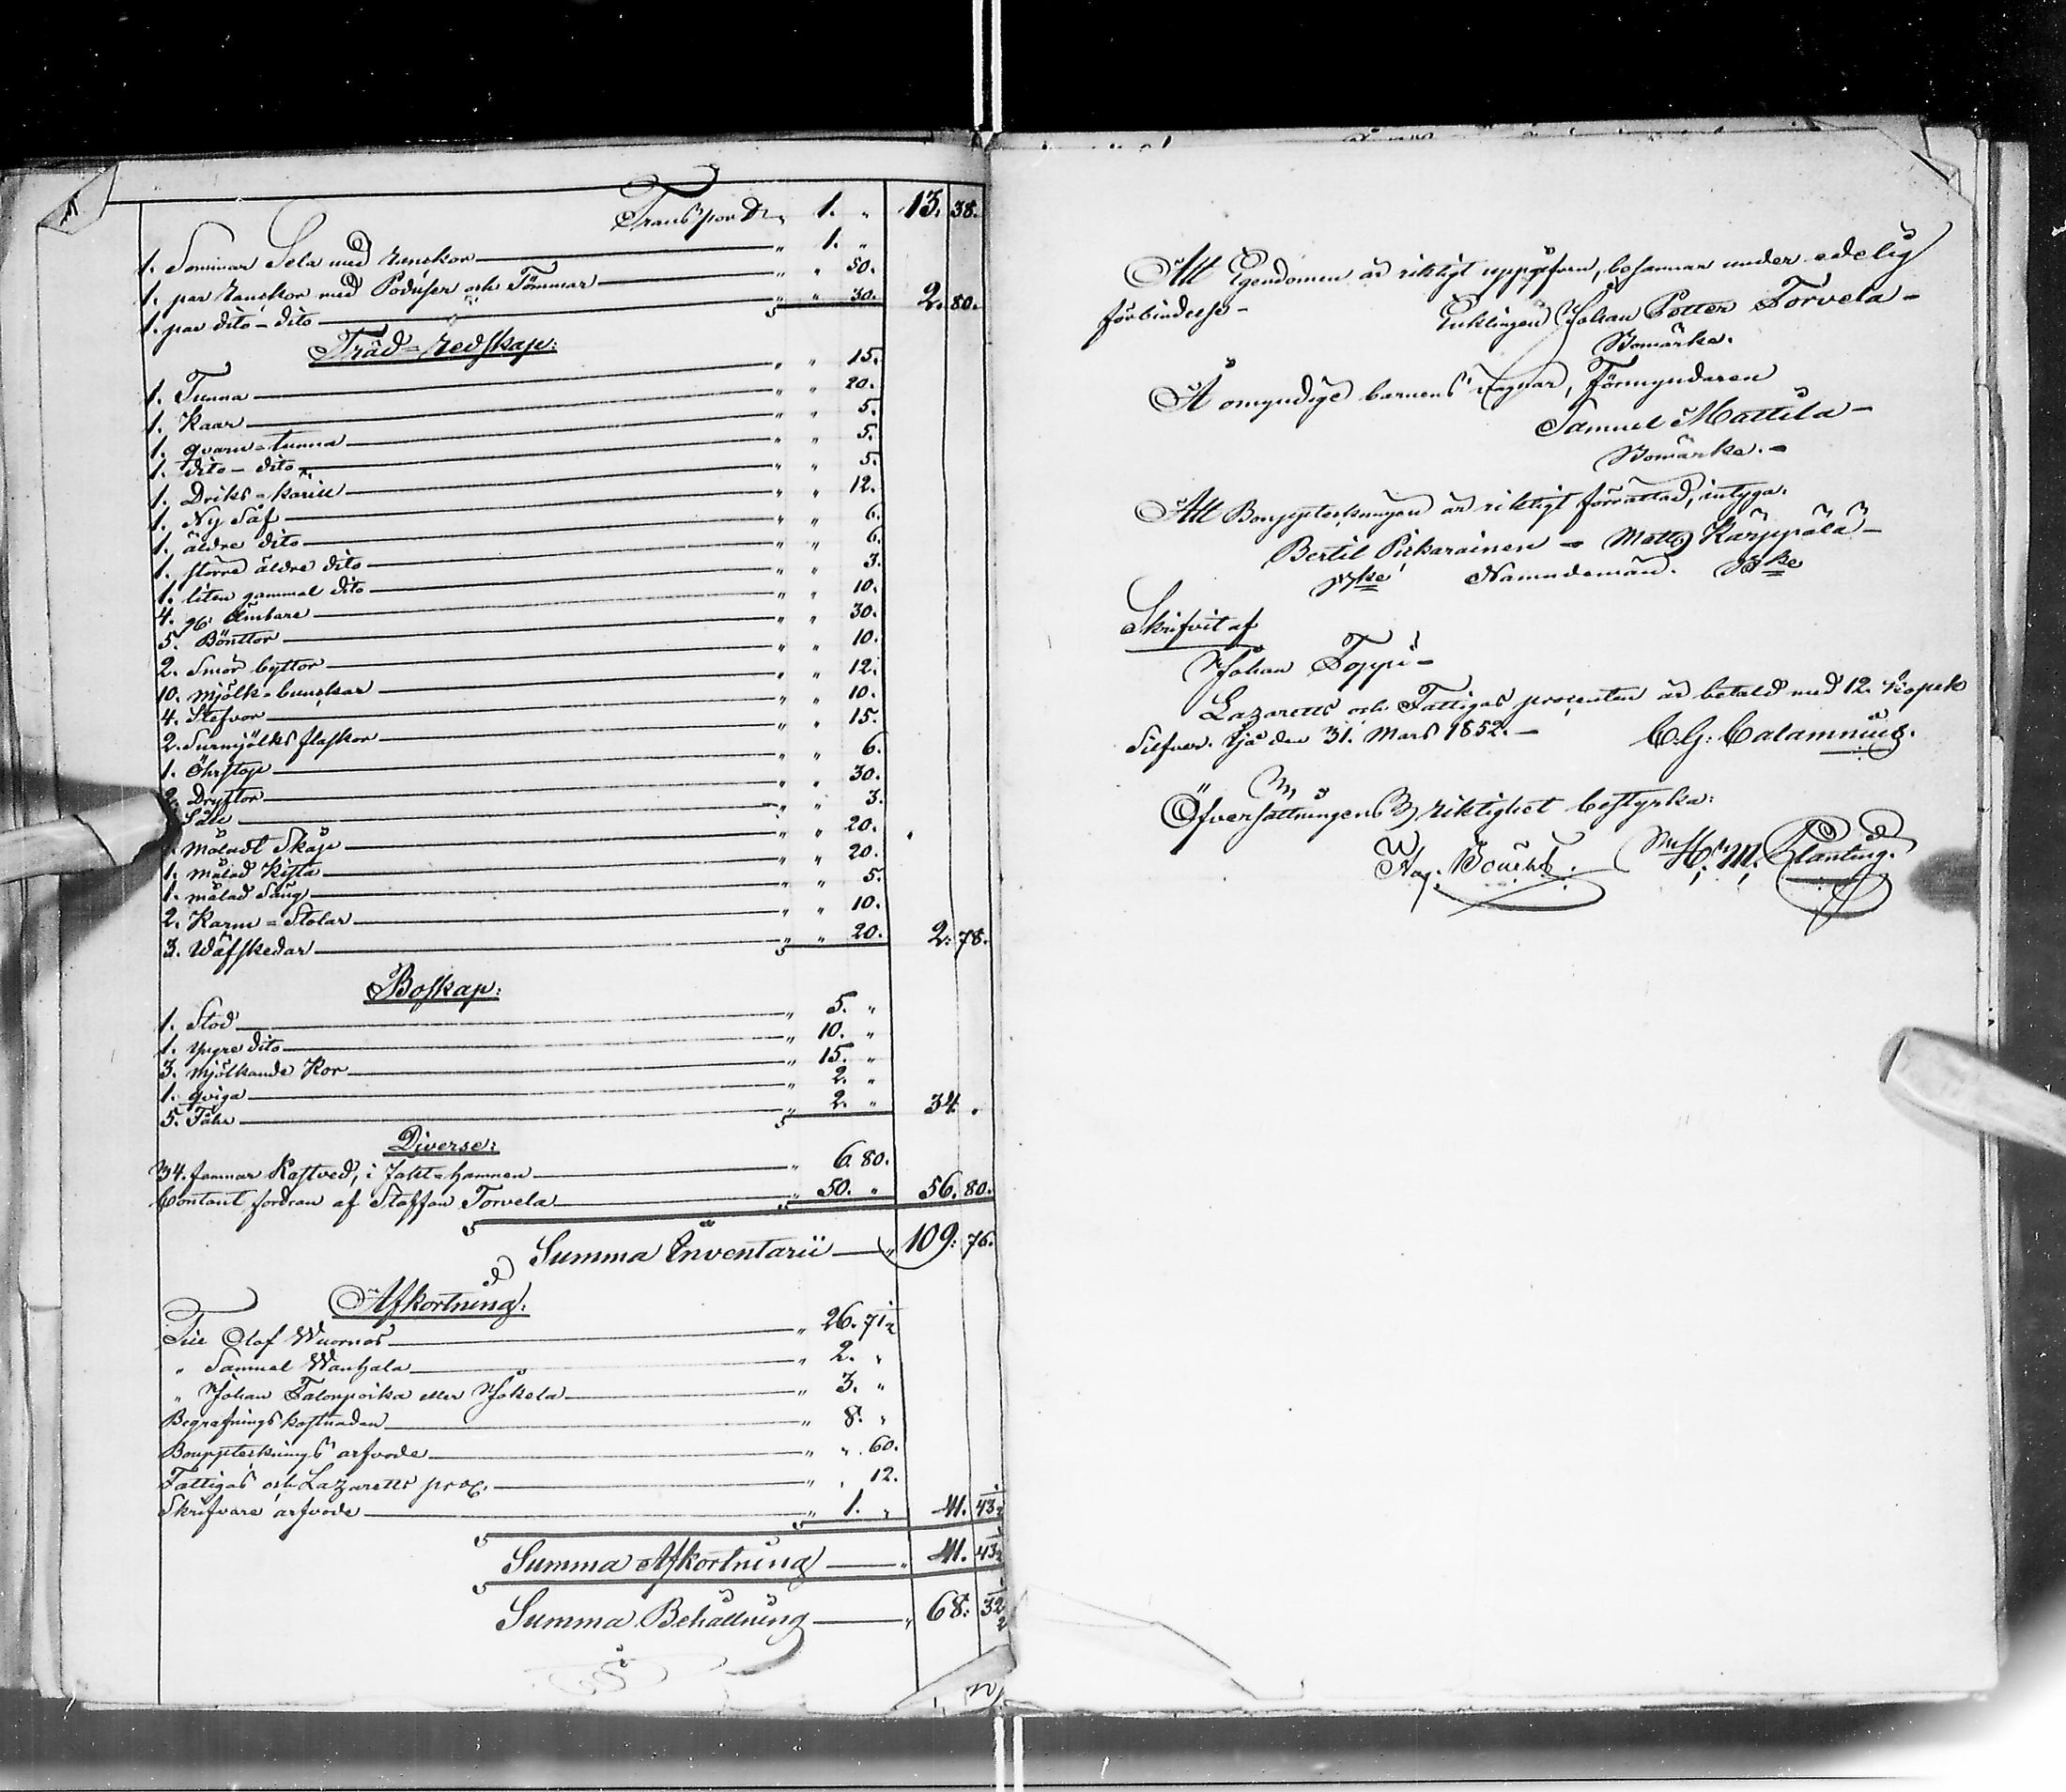 Transport „ 1. „ 13. 38.
1. Sommar Sela med Ranckor „ 1. „
1. par Ranckor med Poduser och Tömmar „ „ 50.
1. par dito - dito „ „ 30. 2. 80.
Träd-redskap:
1. Tunna „ „ 15.
1. Kaar „ „ 20.
1. qvarn-tunna „ „ 5.
1. dito - dito „ „ 5.
1. Driks-karill „ „ 5.
1. Ny Såf „ „ 12.
1. äldre dito „ „ 6.
1. större äldre dito „ „ 6.
1. liten gammal dito „ „ 3.
4. Ämbare „ „ 10.
5. Bönttor „ „ 30.
2. Smör byttor „ „ 10.
10. mjölk-bunckar „ „ 12.
4. Stefvor „ „ 10.
2. Surmjölks flaskor „ „ 15.
1. Öhrstop „ „ 6.
2. Dryftor „ „ 30.
Såll „ „ 3.
Måladt Skåp „ „ 20.
1. målad Kista „ „ 20.
1. målad Säng „ „ 5.
2. Karm-Stolar „ „ 10.
3. Wäfskedar „ „ 20. 2. 78.
Boskap:
1. Stod „ 5. „
1. yngre dito „ 10. „
3. mjölkande Kor „ 15. „
1. qviga „ 2. „
5. Fåhr „ 2. „ 34. „
Diverse:
34. famnar Kastved, i hamnen „ 6. 80.
Contant fordran af Staffan Torvela „ 50. „ 56. 80.
Summa Inventarii „ 109: 76.
Afkortning:
Till Olof Wuornos „ 26. 71½
„ Samuel Wanhala „ 2. „
„ Johan Talonpoika eller Jokela „ 3. „
Begrafnings kostnaden „ 8. „
Bouppteknings arfvode „ „ 60.
Fattigas och Lazaretts proc. „ „ 12.
Skrifvare arfvode „ 1. „ 41. 43½
Summa Afkortning „ 41. 43½
Summa Behållning „ 68: 32½
Att Egendomen är riktigt uppgifven, bejannar under edelig
förbindelse - Enklingen Johan Petter Torvela -
Bomärke.
Å omyndige barnens vägnar, Förmyndaren
Samuel Mattila -
Bomärke. -
Att Bouppteckningen är riktigt förrättad, intyga.
Bertil Pirkarainen - Matts Kärppälä -
Bke Nämndemän. Bke
Skrifvit af
Johan Toppi -
Lazaretts och Fattigas procenten är betald med 12. Kopek
Silfver. Ijå den 31. Mars 1852. - C. G. Calamnius.
Öfversättningens riktighet bestyrka:
H. M. Planting.